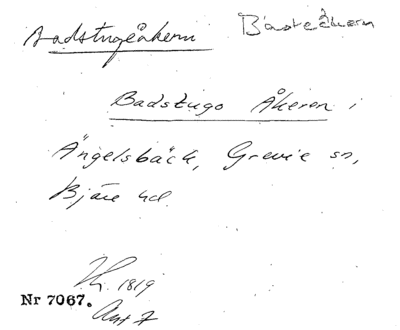 Badstugeåkern Båsteåkern
Badstugo Åkeren i
Ängelsbäck, Grevie sn,
Bjäre hd.
1819
Nr 7067.